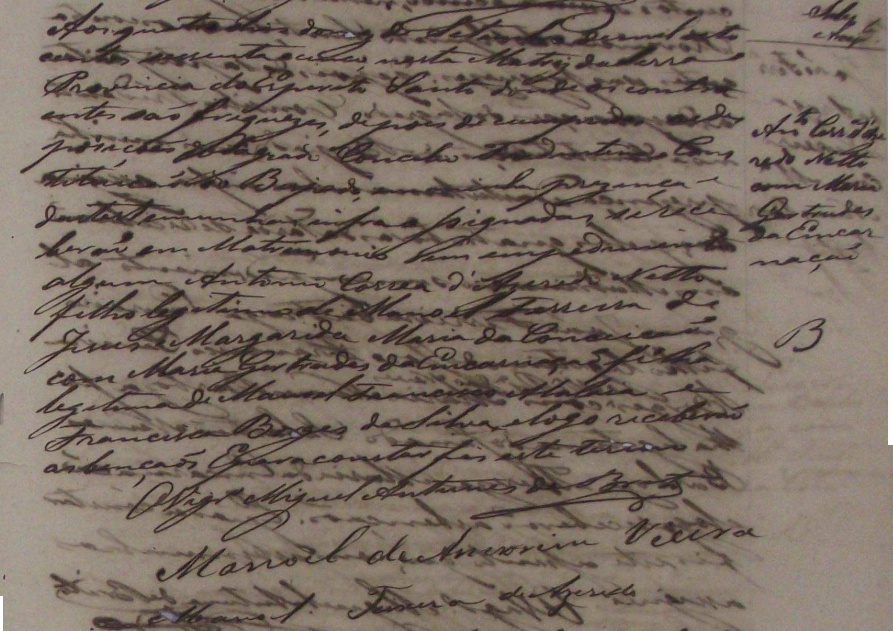 Aos quatro dias do mez de Setembro de mil oito
centos sessenta e cinco nesta Matriz da Serra
Provincia do Espirito Santo donde os contra
entes são freguezes, depois de cumpridas as dis
posições do Sagrado Concilio Tredentino e Cons
tituicão do Bispado, em minha prezença e
das testemunhas infra assignadas se rece
berão em Matrimonio sem impedimento
algum Antonio Correa d'Azeredo Netto
filho legitimo de Manoel Ferreira de
Jesus e Margarida Maria da Conceicão
com Maria Gertrudes da Encarnação filha
legitima de Manoel Francisco e
Francisca Borges da Silva, e logo receberão
as bençãos E para constar fes este termo
O Vigr.º Miguel Antunes de Brito
Manoel de Amorim Vieira
Manoel Teixera de Azeredo
Ant.º Corr.ª d'Aze
redo Netto
com Maria
Gertrudes
da Encar
nação
B